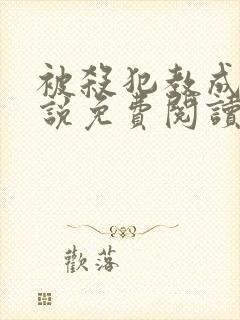 被殺犯教成
說免費閱讀
歡落